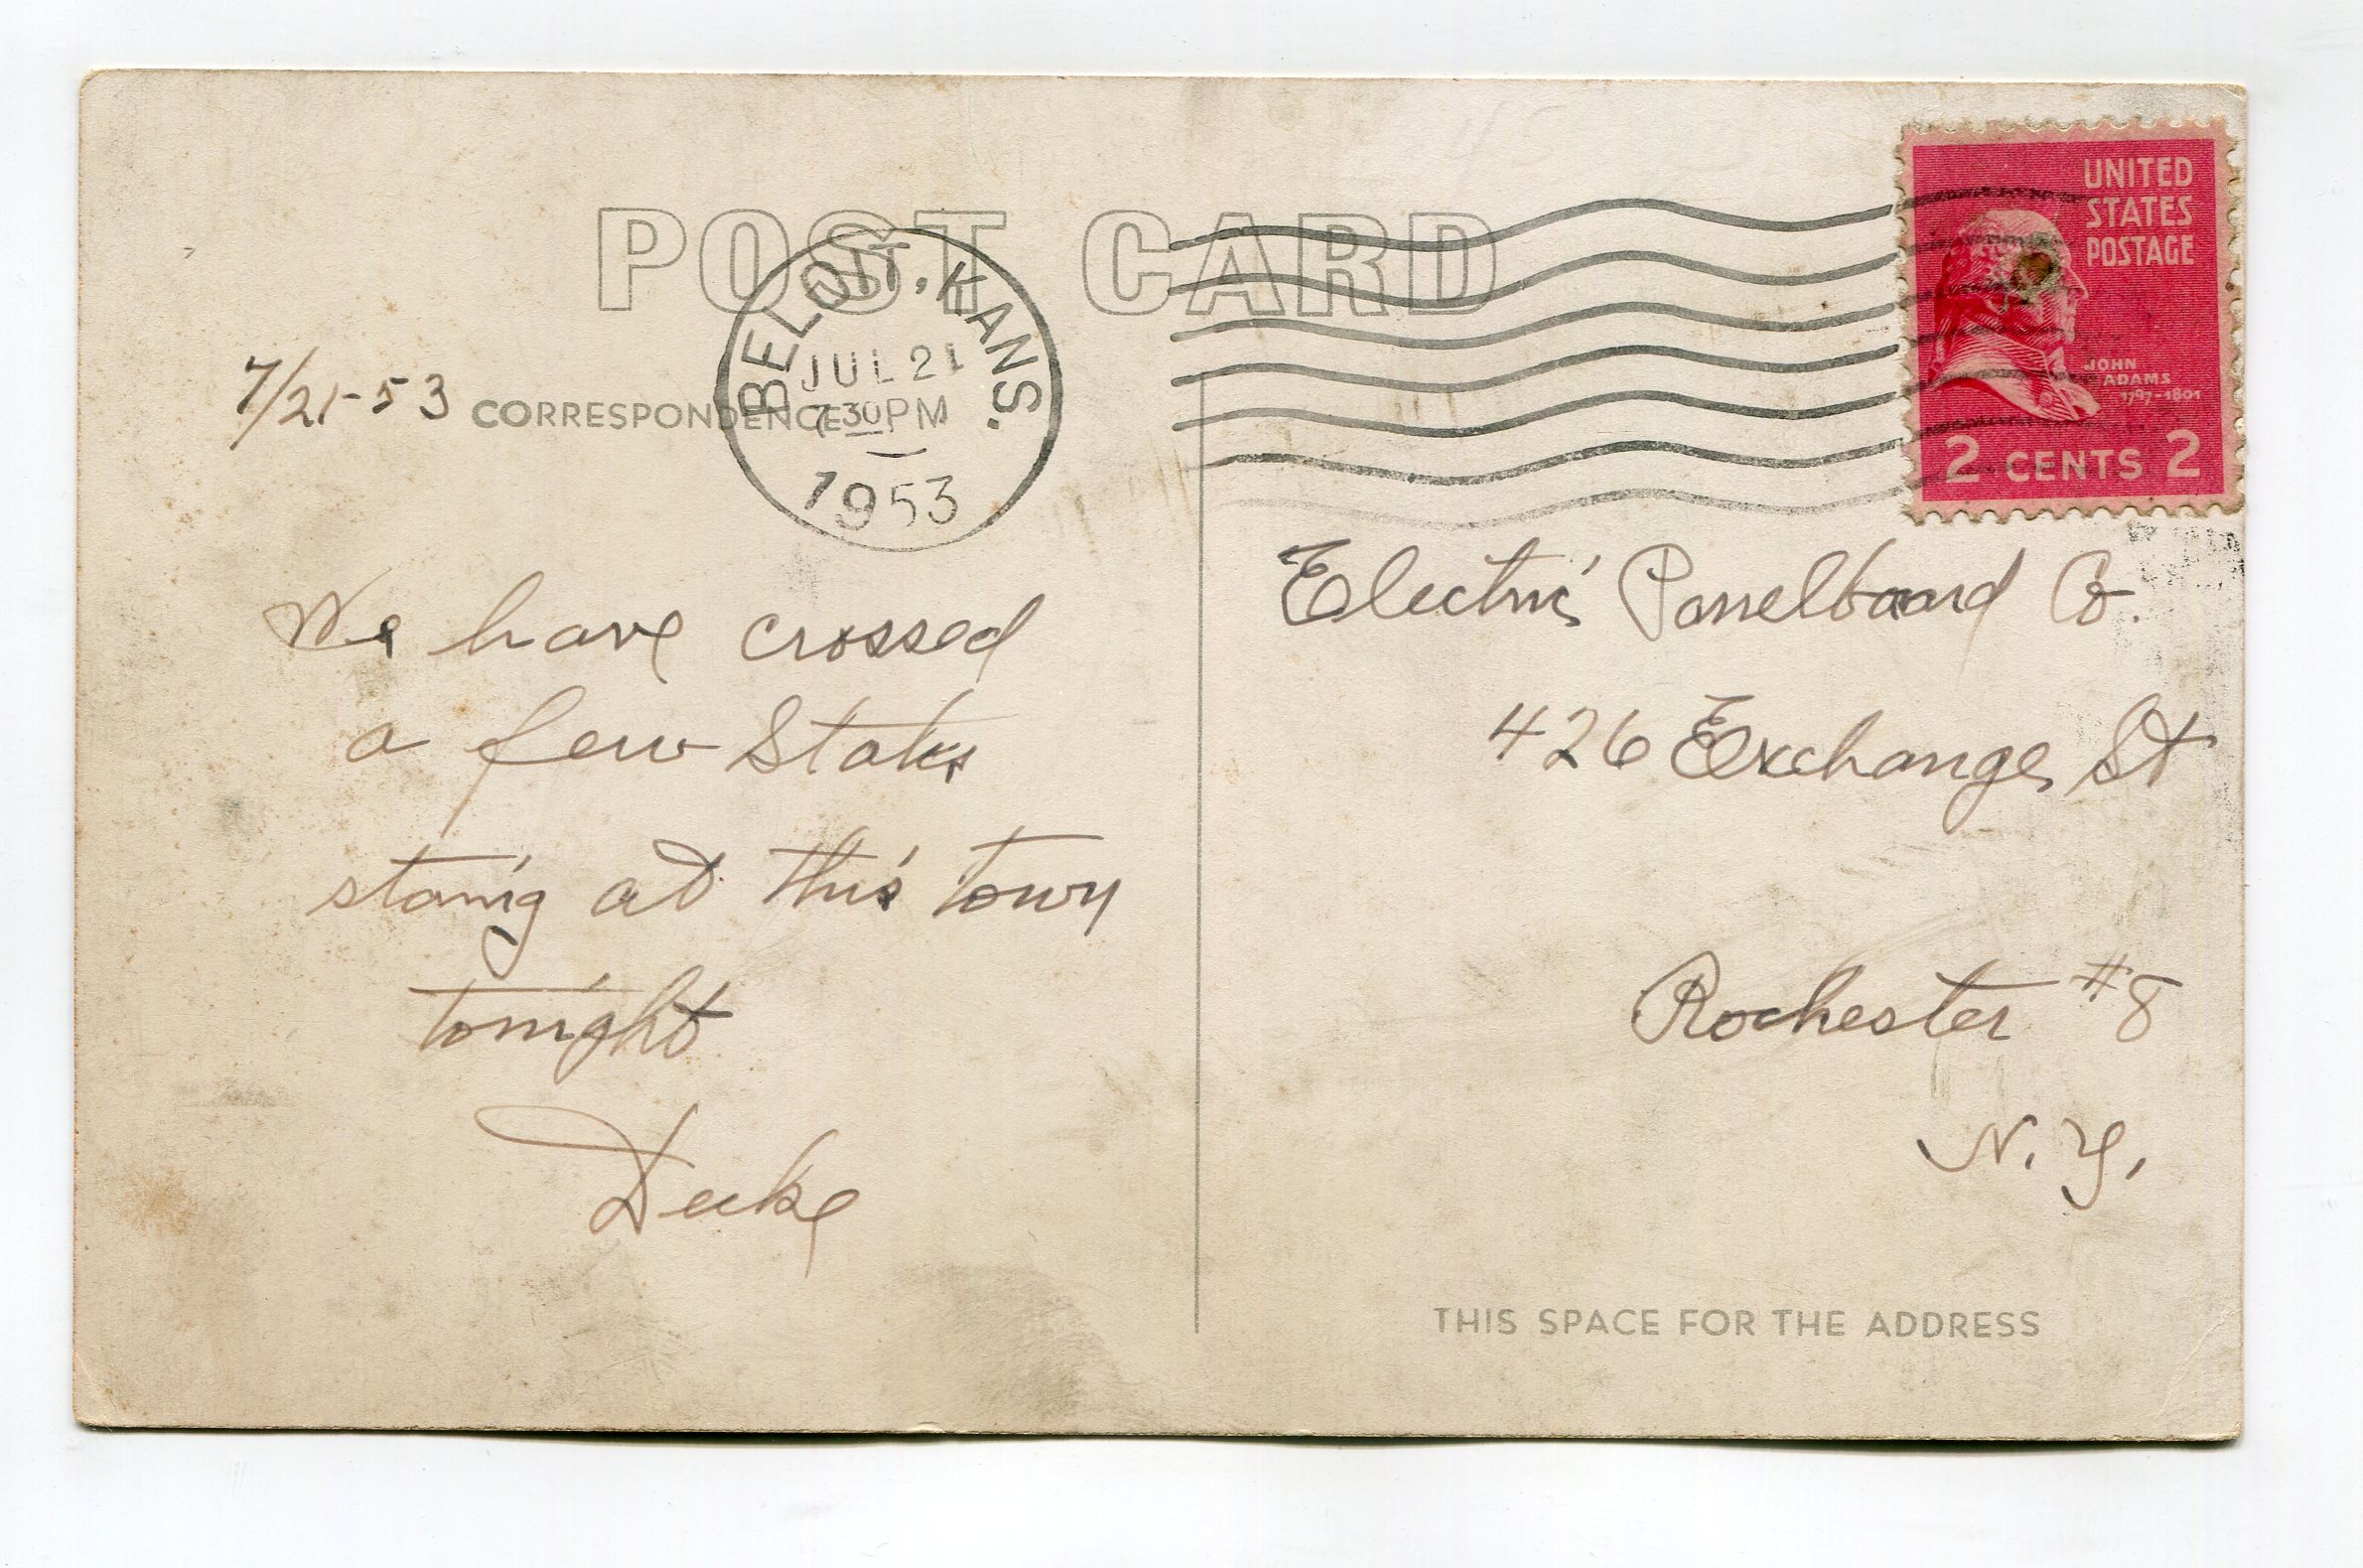 POST CARD
BELOIT, KANS.
JUL 21
7 30 PM
1953
UNITED
STATES
POSTAGE
JOHN
ADAMS
1797-1801
2 CENTS 2
7/21-53
CORRESPONDENCE
We have crossed
a few States
staing at this town
tonight
Duke
Electric Panelboard Co.
426 Exchange St
Rochester #8
N.Y.
THIS SPACE FOR THE ADDRESS